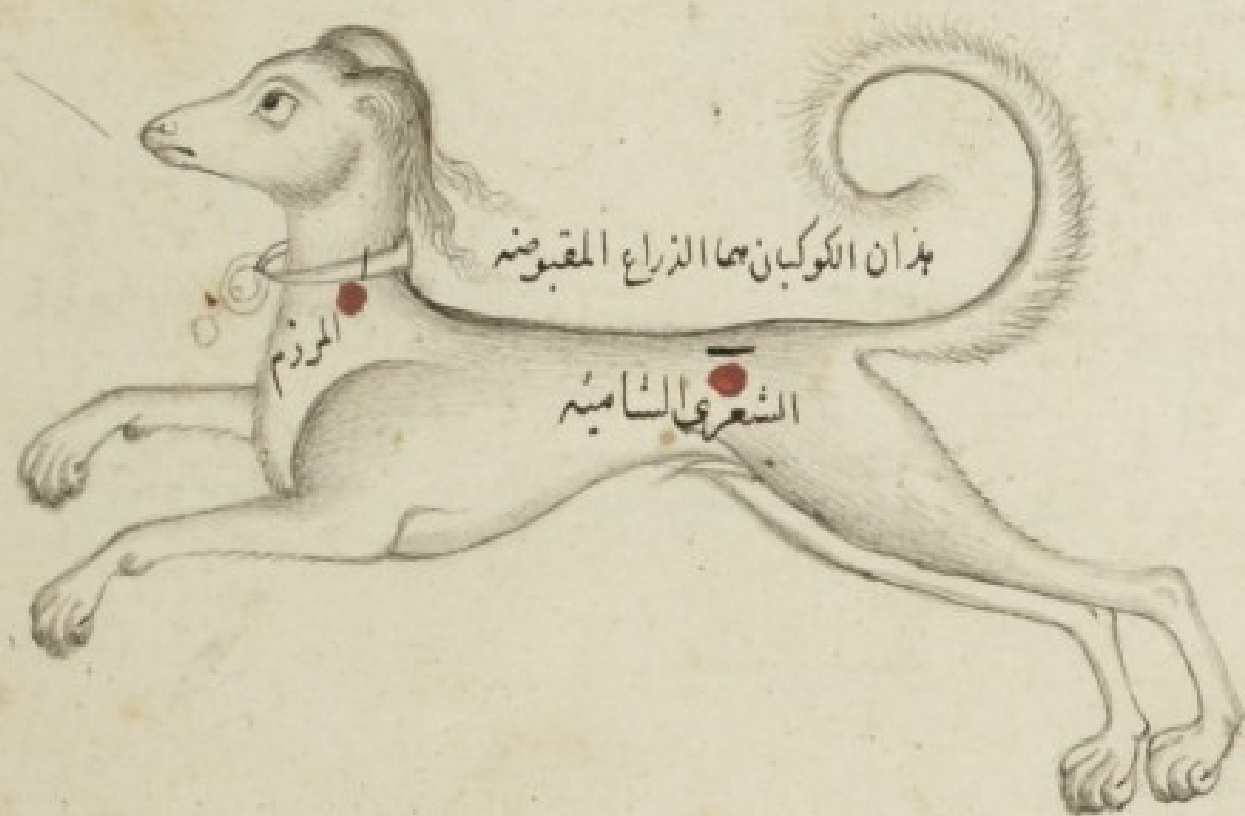 هذان الكوكبان هما الذراع المقبوضه
المرزم
الشعرى الشاميه